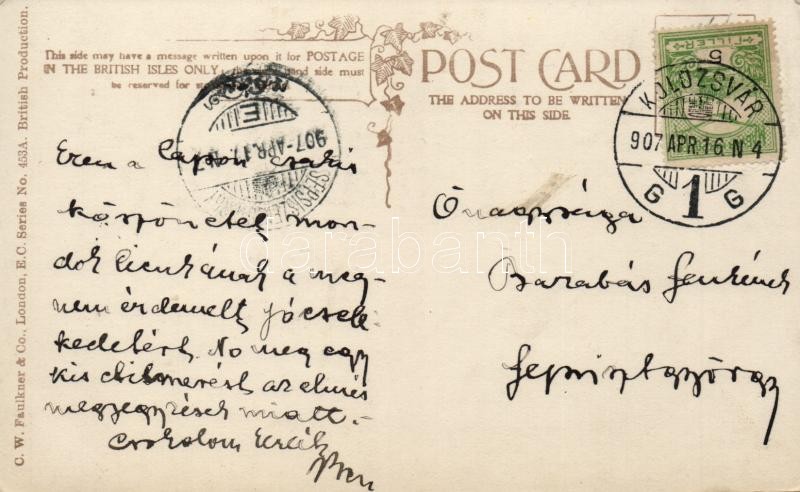 This side may have a message written upon it for POSTAGE
IN THE BRITISH ISLES ONLY, and side must
be reserved for
POST CARD
THE ADDRESS TO BE WRITTEN
ON THIS SIDE.
5
FILLÉR
KOLOZSVÁR
907 APR. 16 N 4
G 1 G
907 APR. 17
C. W. Faulkner & Co., London, E.C. Series No. 453A. British Production.
Ezen a lapon csakis
köszönetet mon-
dok a meg-
nem érdemelt jócsele-
kedetért. No meg egy
kis az elmés
megjegyzések miatt.-
Csókolom
Őnagysága
Barabás
Sepsiszentgyörgy
darabanth